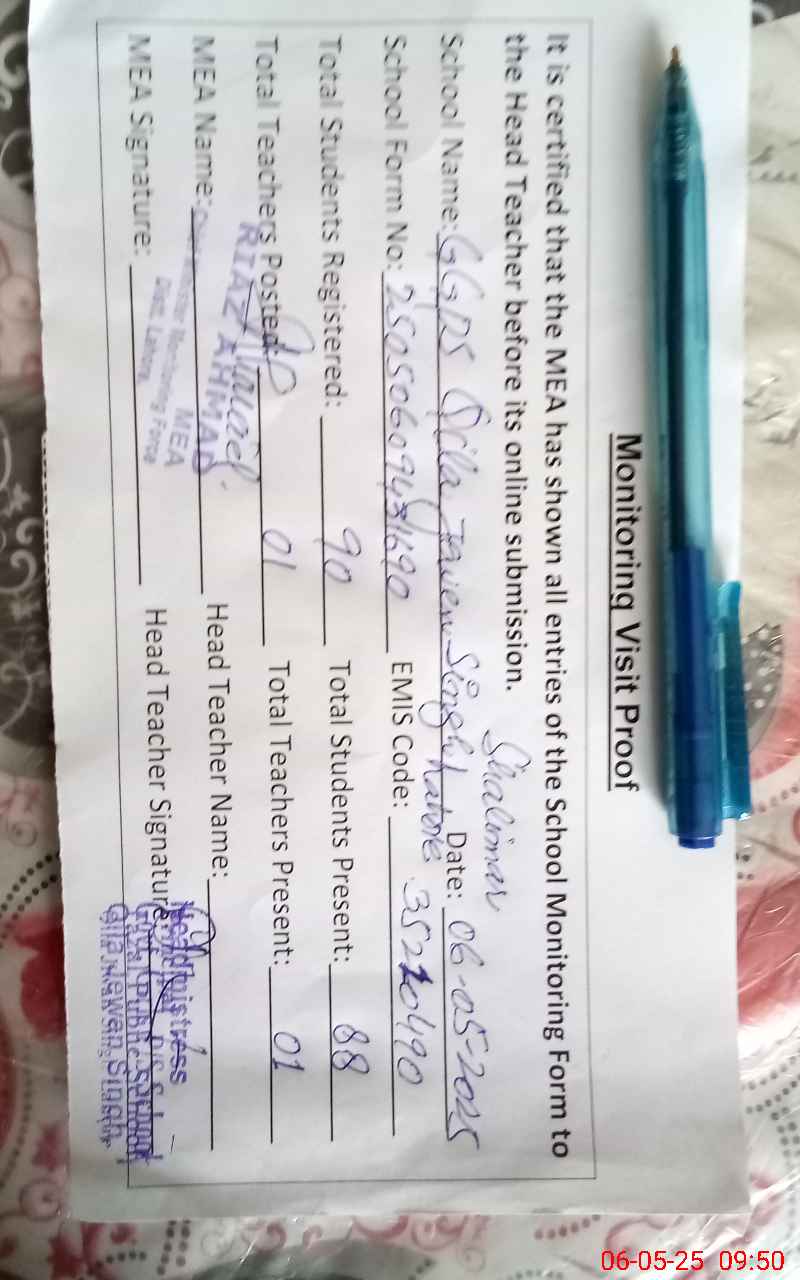 Monitoring Visit Proof
It is certified that the MEA has shown all entries of the School Monitoring Form to
the Head Teacher before its online submission.
Shalimar
School Name: GGPS Qila Jewen Singh Lahore Date: 06-05-2025
School Form No: EMIS Code: 35210490
Total Students Registered: 90 Total Students Present: 88
Total Teachers Posted: 01 Total Teachers Present: 01
RIAZ AHMAD
MEA Name: Head Teacher Name:
MEA
Monitoring Force
Distt. Lahore
MEA Signature: Head Teacher Signature:
Headmistress
Singh
06-05-25 09:50